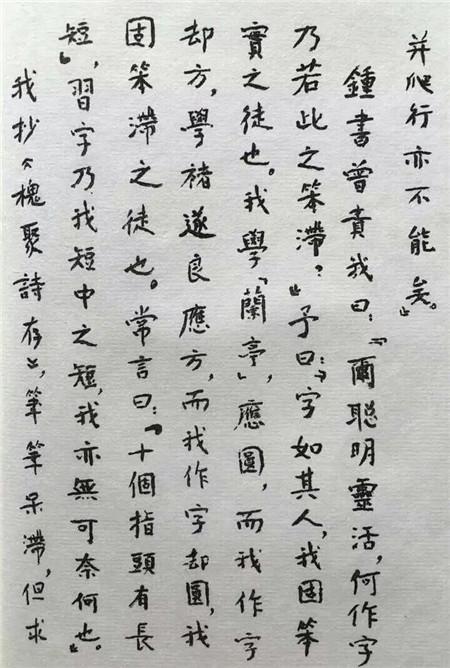 并爬行亦不能矣。」
鍾書曾責我曰：「爾聰明靈活，何作字
乃若此之笨滯？」予曰：「字如其人，我固笨
實之徒也。我學「蘭亭」，應圓，而我作字
却方，學褚遂良應方，而我作字却圓，我
固笨滯之徒也。常言曰：「十個指頭有長
短」，習字乃我短中之短，我亦無可奈何也。」
我抄《槐聚詩存》，筆筆呆滯，但求